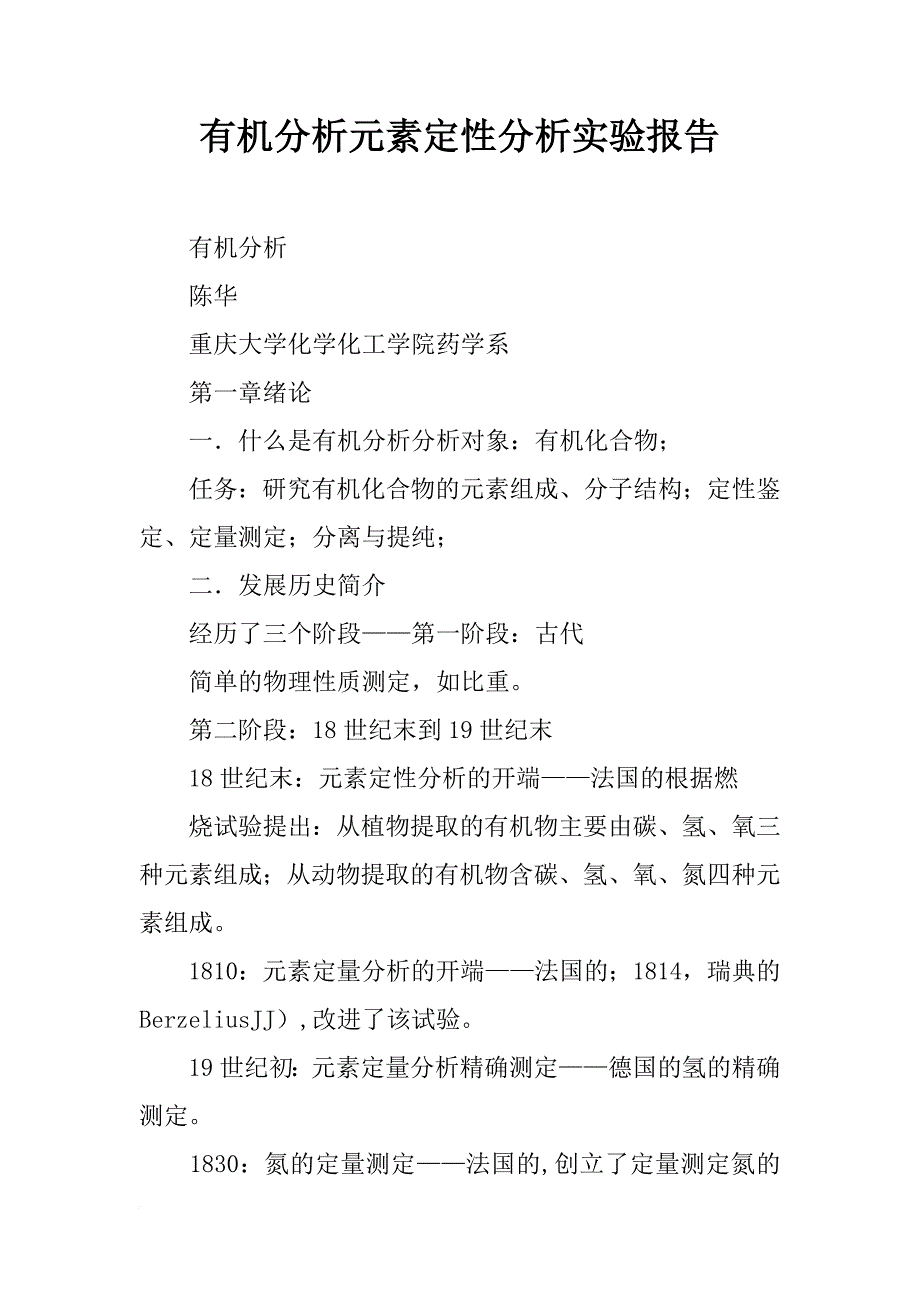 有机分析元素定性分析实验报告
有机分析
陈华
重庆大学化学化工学院药学系
第一章绪论
一．什么是有机分析分析对象：有机化合物；
任务：研究有机化合物的元素组成、分子结构；定性鉴
定、定量测定；分离与提纯；
二．发展历史简介
经历了三个阶段——第一阶段：古代
简单的物理性质测定，如比重。
第二阶段：18 世纪末到 19 世纪末
18 世纪末：元素定性分析的开端——法国的根据燃
烧试验提出：从植物提取的有机物主要由碳、氢、氧三
种元素组成；从动物提取的有机物含碳、氢、氧、氮四种元
素组成。
1810：元素定量分析的开端——法国的；1814，瑞典的
BerzeliusJJ）,改进了该试验。
19 世纪初：元素定量分析精确测定——德国的氢的精确
测定。
1830：氮的定量测定——法国的,创立了定量测定氮的